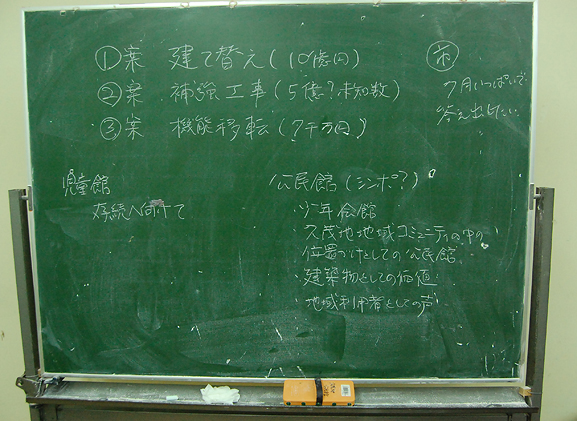 ①案 建て替え(10億円)
②案 補強工事(5億?未知数)
③案 機能移転(7千万円)
㋪市
7月いっぱいで
答え出したい
児童館
存続へ向けて
公民館(シンポ?)
・少年会館
・久茂地地域コミュニティの中の
位置づけとしての公民館
・建築物としての価値
・地域利用者としての声